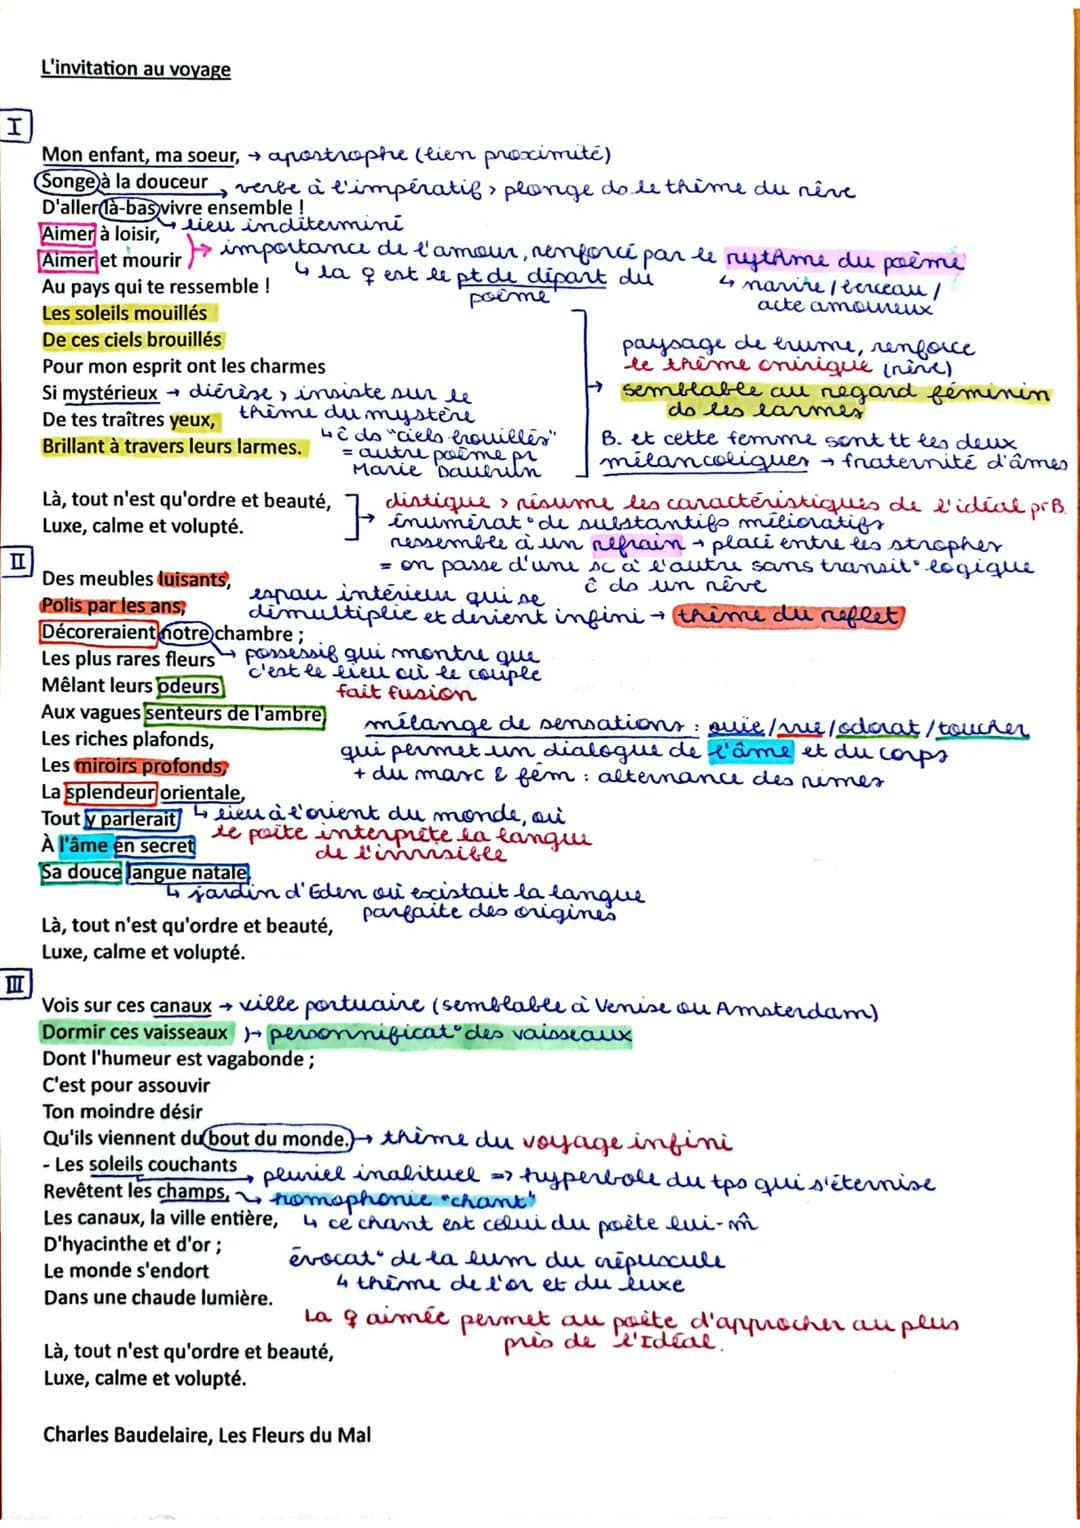 L'invitation au voyage
I
Mon enfant, ma soeur, → apostrophe (lien proximité)
Songe à la douceur → verbe à l'impératif > plonge ds le thème du rêve
D'aller là-bas vivre ensemble !
↳ lieu indéterminé
Aimer à loisir,
Aimer et mourir → importance de l'amour, renforcé par le rythme du poème
↳ la ♀ est le pt de départ du poème
↳ navire / berceau / acte amoureux
Au pays qui te ressemble !
Les soleils mouillés
De ces ciels brouillés
Pour mon esprit ont les charmes
Si mystérieux → diérèse > insiste sur le thème du mystère
De tes traîtres yeux,
↳ ĉ ds "ciels brouillés" = autre poème pr Marie Daubrun
Brillant à travers leurs larmes.
→ paysage de brume, renforce
le thème onirique (rêve)
semblable au regard féminin
ds les larmes
B. et cette femme sont tt les deux
mélancoliques → fraternité d'âmes
Là, tout n'est qu'ordre et beauté,
Luxe, calme et volupté.
→ distique > résume les caractéristiques de l'idéal pr B.
énumérat° de substantifs mélioratifs
ressemble à un refrain → placé entre les strophes
= on passe d'une sc à l'autre sans transit° logique
ĉ ds un rêve
II
Des meubles luisants,
Polis par les ans,
espace intérieur qui se
démultiplie et devient infini → thème du reflet
Décoreraient notre chambre ;
↳ possessif qui montre que
c'est le lieu où le couple
fait fusion
Les plus rares fleurs
Mêlant leurs odeurs
Aux vagues senteurs de l'ambre,
mélange de sensations : ouïe/vue/odorat/toucher
qui permet un dialogue de l'âme et du corps
+ du masc & fém : alternance des rimes
Les riches plafonds,
Les miroirs profonds,
La splendeur orientale,
↳ lieu à l'orient du monde, où
le poète interprète la langue
de l'invisible
Tout y parlerait
À l'âme en secret
Sa douce langue natale.
↳ jardin d'Eden où existait la langue
parfaite des origines
Là, tout n'est qu'ordre et beauté,
Luxe, calme et volupté.
III
Vois sur ces canaux → ville portuaire (semblable à Venise ou Amsterdam)
Dormir ces vaisseaux → personnificat° des vaisseaux
Dont l'humeur est vagabonde ;
C'est pour assouvir
Ton moindre désir
Qu'ils viennent du bout du monde. → thème du voyage infini
- Les soleils couchants → pluriel inabituel => hyperbole du tps qui s'éternise
Revêtent les champs, → homophonie "chant"
↳ ce chant est celui du poète lui-m̂
Les canaux, la ville entière,
D'hyacinthe et d'or ;
évocat° de la lum du crépuscule
↳ thème de l'or et du luxe
Le monde s'endort
Dans une chaude lumière.
La ♀ aimée permet au poète d'approcher au plus
près de l'Idéal.
Là, tout n'est qu'ordre et beauté,
Luxe, calme et volupté.
Charles Baudelaire, Les Fleurs du Mal